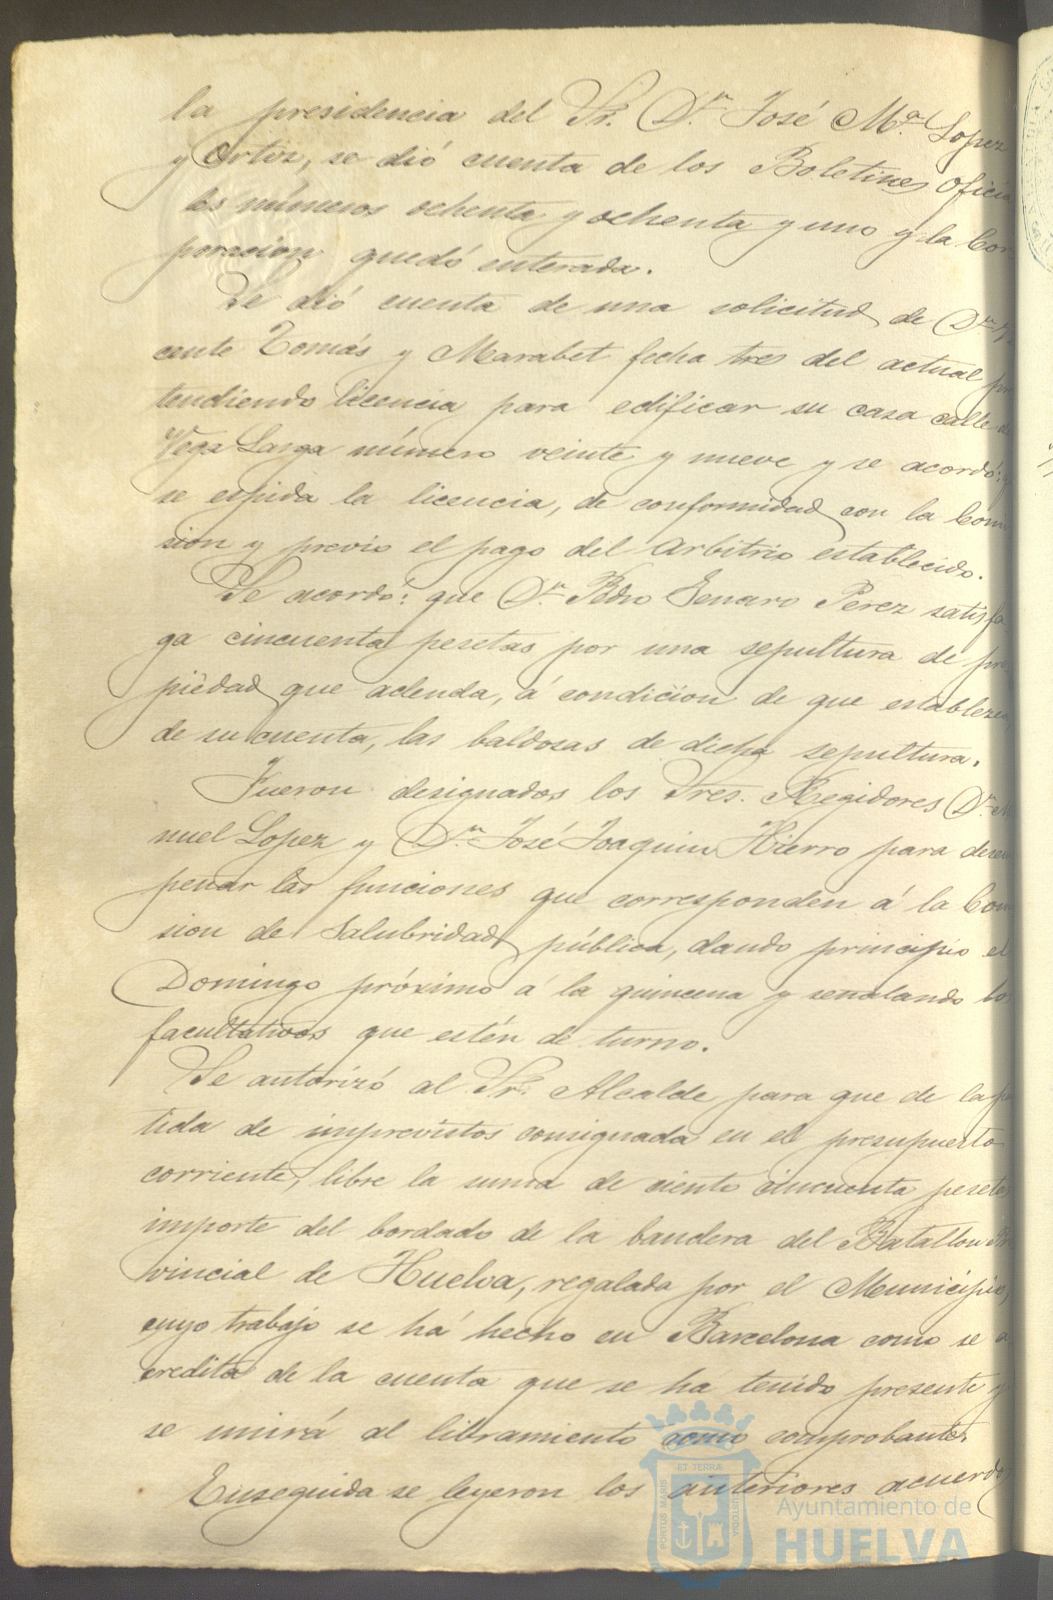 la presidencia del Sr. Dn. José Ma. Lopez
y Ortiz, se dió cuenta de los Boletines Oficia
les números ochenta y ochenta y uno y la Cor
poracion quedó enterada.
Se dió cuenta de una solicitud de Dn. Vi
cente Tomás y Marabet fecha tres del actual pre
tendiendo licencia para edificar su casa calle de
Vega Larga número veinte y nueve y se acordó:
se espida la licencia, de conformidad con la Comi
sion y previo el pago del arbitrio establecido.
Se acordó: que Dn. Pedro Genaro Perez satisfa
ga cincuenta pesetas por una sepultura de pro
piedad que adeuda, á condicion de que establezca
de su cuenta, las baldosas de dicha sepultura.
Fueron designados los Sres. Regidores Dn. Ma
nuel Lopez y Dn. José Joaquin Hierro para desem
peñar las funciones que corresponden á la Comi
sion de Salubridad pública, dando principio el
Domingo próximo á la quincena y señalando los
facultativos que estén de turno.
Se autorizó al Sr. Alcalde para que de la par
tida de imprevistos consignada en el presupuesto
corriente, libre la suma de ciento cincuenta pesetas
importe del bordado de la bandera del Batallon Pro
vincial de Huelva, regalada por el Municipio,
cuyo trabajo se há hecho en Barcelona como se a
credita de la cuenta que se ha tenido presente y
se unirá al libramiento como comprobante.
Enseguida se leyeron los anteriores acuerdos
PORTUS MARIS
ET TERRÆ
CUSTODIA
Ayuntamiento de
HUELVA